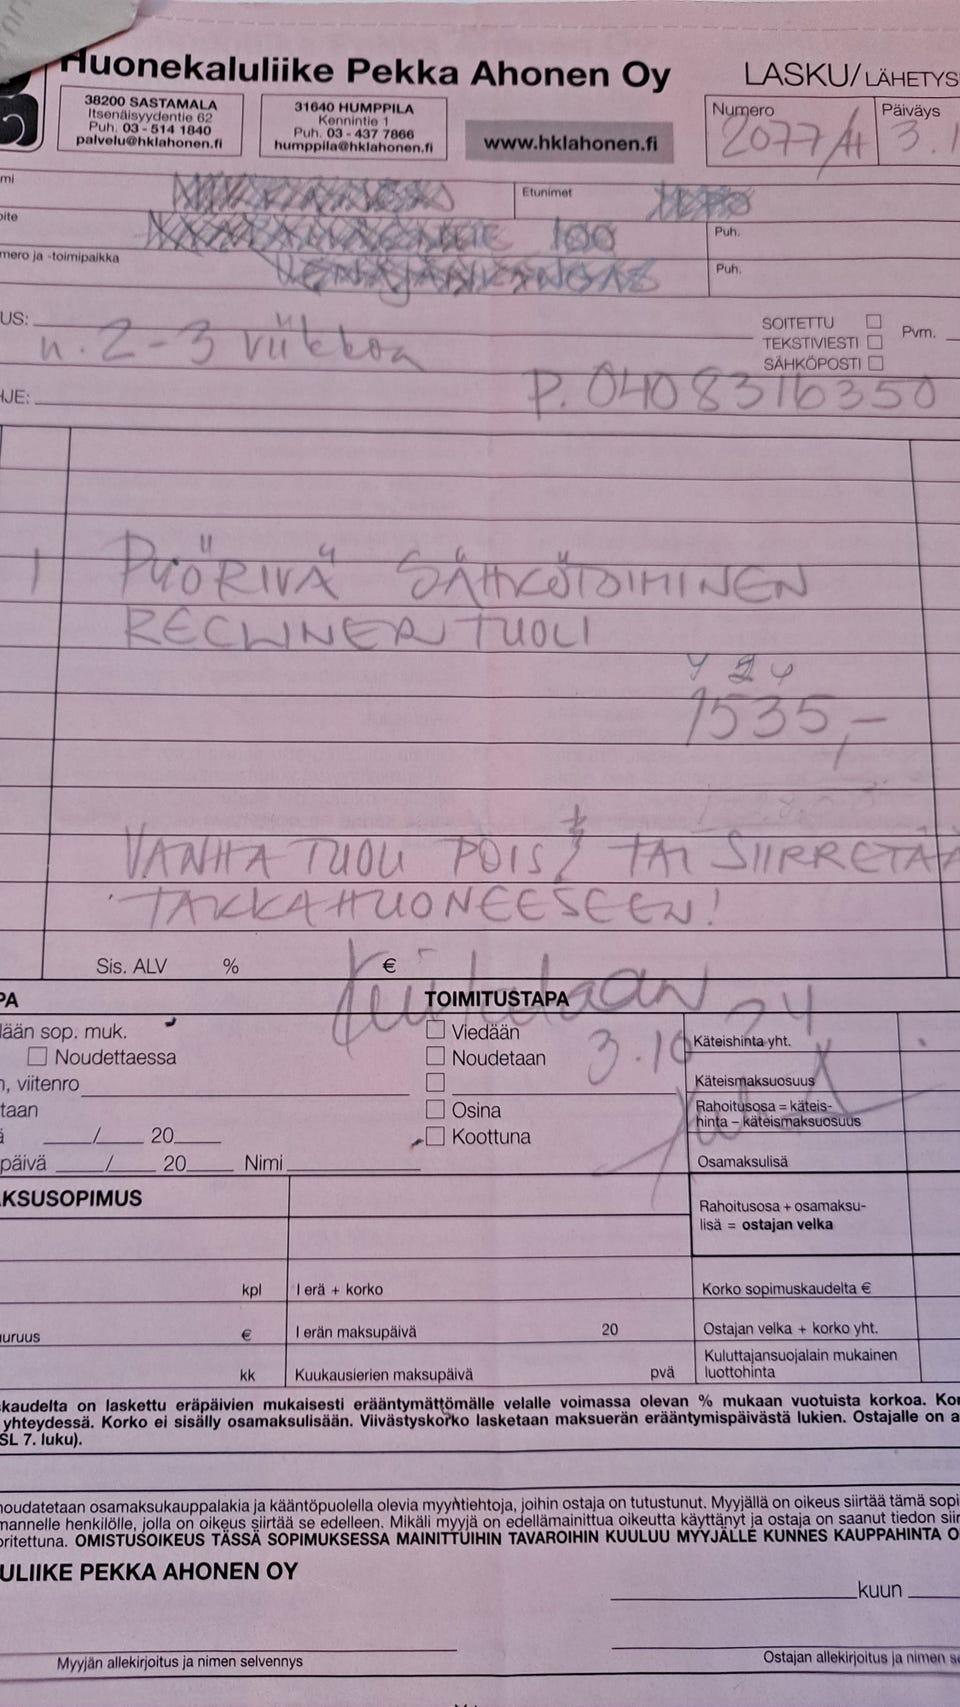 Huonekaluliike Pekka Ahonen Oy
LASKU/LÄHETYS
38200 SASTAMALA
Itsenäisyydentie 62
Puh. 03 - 514 1840
palvelu@hklahonen.fi
31640 HUMPPILA
Kennintie 1
Puh. 03 - 437 7866
humppila@hklahonen.fi
www.hklahonen.fi
Numero
2077/
Päiväys
3.1
mi
Etunimet
oite
100
Puh.
mero ja -toimipaikka
Puh.
US:
n. 2-3 viikkoa
SOITETTU
TEKSTIVIESTI
SÄHKÖPOSTI
Pvm.
HJE:
P. 0408316350
1 PYÖRIVÄ SÄHKÖTOIMINEN
RECLINER TUOLI
1535,-
VANHA TUOLI POIS TAI SIIRRETÄÄ
TAKKAHUONEESEEN!
Sis. ALV % €
PA
TOIMITUSTAPA
lään sop. muk.
Noudettaessa
n, viitenro
taan
ä / 20
päivä / 20 Nimi
Viedään
Noudetaan
Osina
Koottuna
3.10 24
Käteishinta yht.
Käteismaksuosuus
Rahoitusosa = käteis-
hinta – käteismaksuosuus
Osamaksulisä
AKSUSOPIMUS
Rahoitusosa + osamaksu-
lisä = ostajan velka
kpl
I erä + korko
Korko sopimuskaudelta €
uruus
€
I erän maksupäivä 20
Ostajan velka + korko yht.
kk
Kuukausierien maksupäivä pvä
Kuluttajansuojalain mukainen
luottohinta
skaudelta on laskettu eräpäivien mukaisesti erääntymättömälle velalle voimassa olevan % mukaan vuotuista korkoa. Kor
yhteydessä. Korko ei sisälly osamaksulisään. Viivästyskorko lasketaan maksuerän erääntymispäivästä lukien. Ostajalle on a
SL 7. luku).
noudatetaan osamaksukauppalakia ja kääntöpuolella olevia myyntiehtoja, joihin ostaja on tutustunut. Myyjällä on oikeus siirtää tämä sopi
mannelle henkilölle, jolla on oikeus siirtää se edelleen. Mikäli myyjä on edellämainittua oikeutta käyttänyt ja ostaja on saanut tiedon siir
oritettuna. OMISTUSOIKEUS TÄSSÄ SOPIMUKSESSA MAINITTUIHIN TAVAROIHIN KUULUU MYYJÄLLE KUNNES KAUPPAHINTA O
ULIIKE PEKKA AHONEN OY
kuun
Myyjän allekirjoitus ja nimen selvennys
Ostajan allekirjoitus ja nimen se